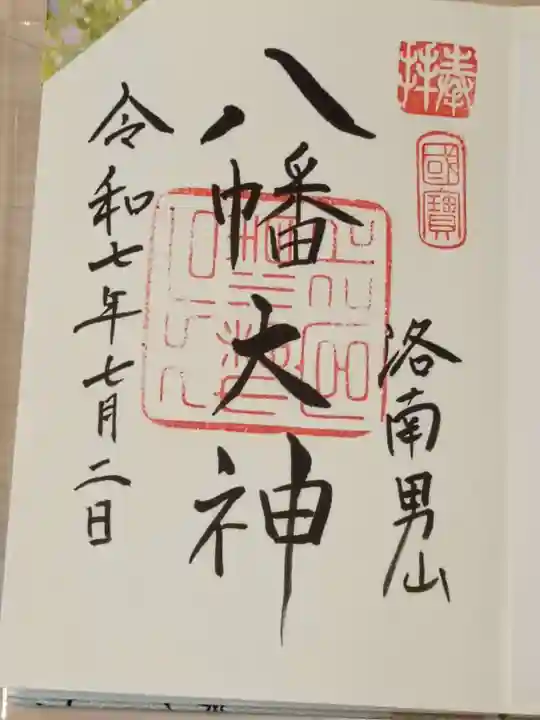 奉拝
國寶
洛南男山
八幡大神
令和七年七月二日